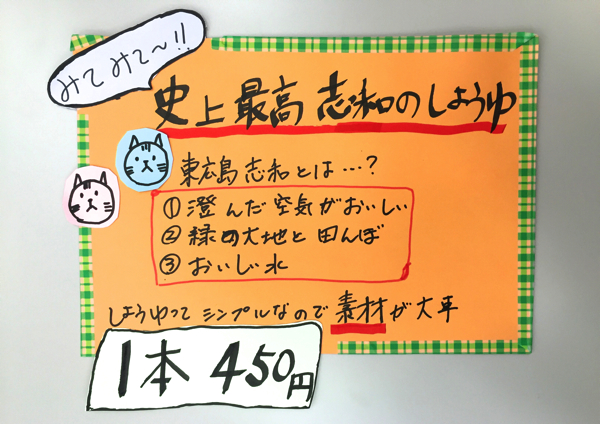 みてみて〜!!
史上最高 志和のしょうゆ
東広島志和とは…?
①澄んだ空気がおいしい
②緑の大地と田んぼ
③おいしい水
しょうゆってシンプルなので素材が大事
1本 450円